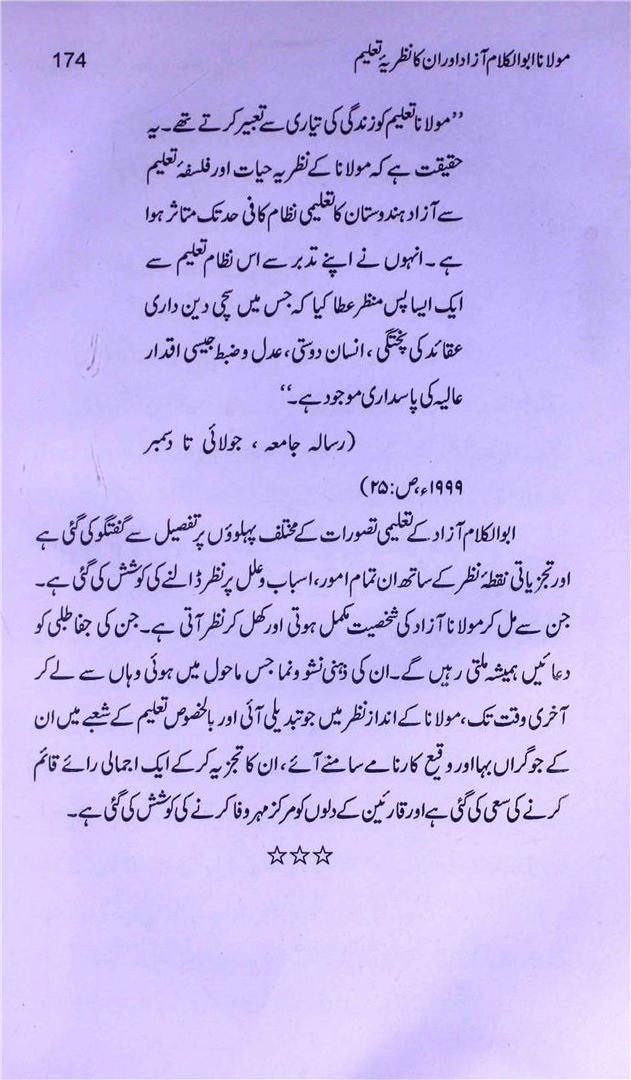 مولانا ابوالکلام آزاد اور ان کا نظریۂ تعلیم 174
’’مولانا تعلیم کو زندگی کی تیاری سے تعبیر کرتے تھے۔ یہ
حقیقت ہے کہ مولانا کے نظریہ حیات اور فلسفۂ تعلیم
سے آزاد ہندوستان کا تعلیمی نظام کافی حد تک متاثر ہوا
ہے۔ انہوں نے اپنے تدبر سے اس نظام تعلیم سے
ایک ایسا پس منظر عطا کیا کہ جس میں سچی دین داری
عقائد کی پختگی، انسان دوستی، عدل وضبط جیسی اقدار
عالیہ کی پاسداری موجود ہے۔‘‘
(رسالہ جامعہ ، جولائی تا دسمبر
۱۹۹۹ء، ص: ۲۵)
ابوالکلام آزاد کے تعلیمی تصورات کے مختلف پہلوؤں پر تفصیل سے گفتگو کی گئی ہے
اور تجزیاتی نقطۂ نظر کے ساتھ ان تمام امور، اسباب وعلل پر نظر ڈالنے کی کوشش کی گئی ہے۔
جن سے مل کر مولانا آزاد کی شخصیت مکمل ہوتی اور کھل کر نظر آتی ہے۔ جن کی جفاطلبی کو
دعائیں ہمیشہ ملتی رہیں گے۔ ان کی ذہنی نشو ونما جس ماحول میں ہوئی وہاں سے لے کر
آخری وقت تک، مولانا کے انداز نظر میں جو تبدیلی آئی اور بالخصوص تعلیم کے شعبے میں ان
کے جو گراں بہا اور وقیع کارنامے سامنے آئے، ان کا تجزیہ کرکے ایک اجمالی رائے قائم
کرنے کی سعی کی گئی ہے اور قارئین کے دلوں کو مرکز مہر وفا کرنے کی کوشش کی گئی ہے۔
☆☆☆